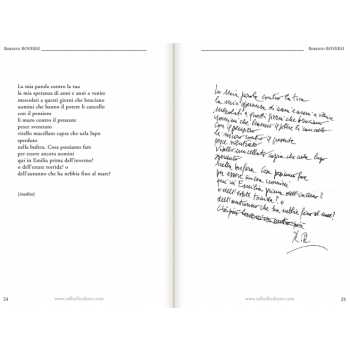 Roberto ROVERSI
La mia parola contro la tua
la mia speranza di anni e anni a venire
mescolati a questi giorni che bruciano
uomini che hanno il potere li cancello
con il pensiero
li muro contro il presente
pesce sventrato
vitello macellato capra che urla lupo
sperduto
nella bufera. Cosa possiamo fare
per essere ancora uomini
qui in Emilia prima dell'inverno?
o dell'estate torrida? o
dell'autunno che ha nebbia fino al mare?
[inedito]
24
www.raffaellieditore.com
Roberto ROVERSI
La mia parola contro la tua
la mia speranza di anni e anni a venire
mescolati a questi giorni che bruciano
uomini che hanno il potere li cancello
con il pensiero
li muro contro il presente
pesce sventrato
vitello macellato capra che urla lupo
sperduto
nella bufera. Cosa possiamo fare
per essere ancora uomini
qui in Emilia prima dell'inverno?
o dell'estate torrida? o
dell'autunno che ha nebbia fino al mare?
R.R.
www.raffaellieditore.com
25